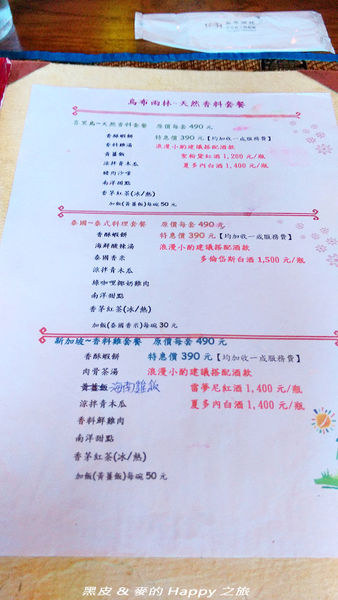 烏布雨林~天然香料套餐
峇里島~天然香料套餐 原價每套 490 元
香酥蝦餅 特惠價 390 元【均加收一成服務費】
香料雞湯 浪漫小酌建議搭配酒款
黃薑飯 聖粉黛紅酒 1,200 元/瓶
涼拌青木瓜 夏多內白酒 1,400 元/瓶
豬肉沙嗲
南洋甜點
香茅紅茶(冰/熱)
加飯(黃薑飯)每碗 50 元
泰國~泰式料理套餐 原價每套 490 元
香酥蝦餅 特惠價 390 元【均加收一成服務費】
海鮮酸辣湯 浪漫小酌建議搭配酒款
泰國香米 多倫岱斯白酒 1,500 元/瓶
涼拌青木瓜
綠咖哩椰奶雞肉
南洋甜點
香茅紅茶(冰/熱)
加飯(泰國香米)每碗 30 元
新加坡~香料雞套餐 原價每套 490 元
香酥蝦餅 特惠價 390 元【均加收一成服務費】
肉骨茶湯 浪漫小酌建議搭配酒款
黃薑飯 海南雞飯 雷夢尼紅酒 1,400 元/瓶
涼拌青木瓜 夏多內白酒 1,400 元/瓶
香料鮮雞肉
南洋甜點
香茅紅茶(冰/熱)
加飯(黃薑飯)每碗 50 元
黑皮 & 麥的 Happy 之旅